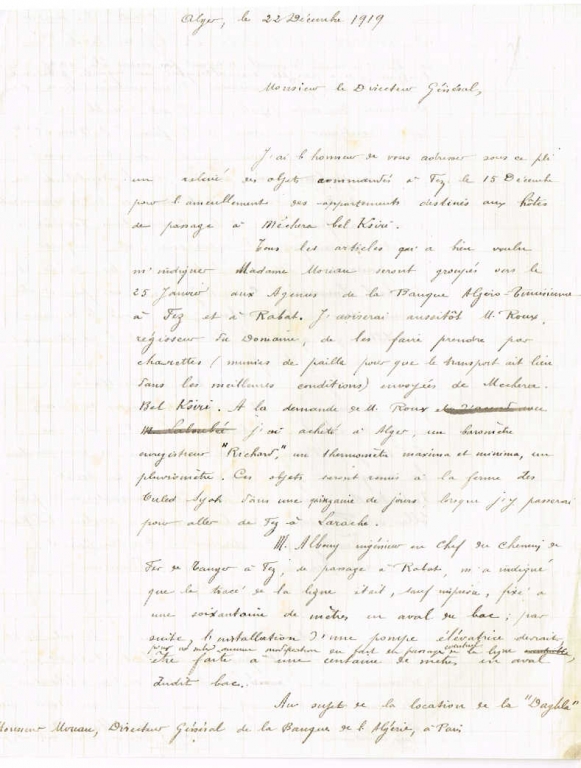 Alger, le 22 Décembre 1919
Monsieur le Directeur Général,
J'ai l'honneur de vous adresser sous ce pli
un relevé des objets commandés à Fez, le 15 Décembre
pour l'ameublement des appartements destinés aux hôtes
de passage à Méchera bel Ksiri.
Tous les articles qu'a bien voulu
m'indiquer Madame Moreau seront groupés vers le
25 Janvier aux Agences de la Banque Algéro-Tunisienne
à Fez et à Rabat. J'aviserai aussitôt M. Roux,
régisseur du Domaine, de les faire prendre par
charettes (munies de paille pour que le transport ait lieu
dans les meilleures conditions) envoyées de Mechera
Bel Ksiri. A la demande de M. Roux et
M. j'ai acheté à Alger, un baromètre
enregistreur "Richard," un thermomètre maxima et minima, un
pluviomètre. Ces objets seront remis à la ferme des
Ouled Syah dans une quinzaine de jours lorsque j'y passerai
pour aller de Fez à Larache.
M. Albony ingénieur en Chef du Chemin de
Fer de Tanger à Fez, de passage à Rabat, m'a indiqué
que le tracé de la ligne était, sauf imprévu, fixé à
une soixantaine de mètres en aval du bac; par
suite, l'installation d'une pompe élévatrice devrait,
pour au passage de la ligne
être faite à une centaine de mètres en aval
dudit bac.
Au sujet de la location de la "Daghla"
Monsieur Moreau, Directeur Général de la Banque de l'Algérie, à Paris